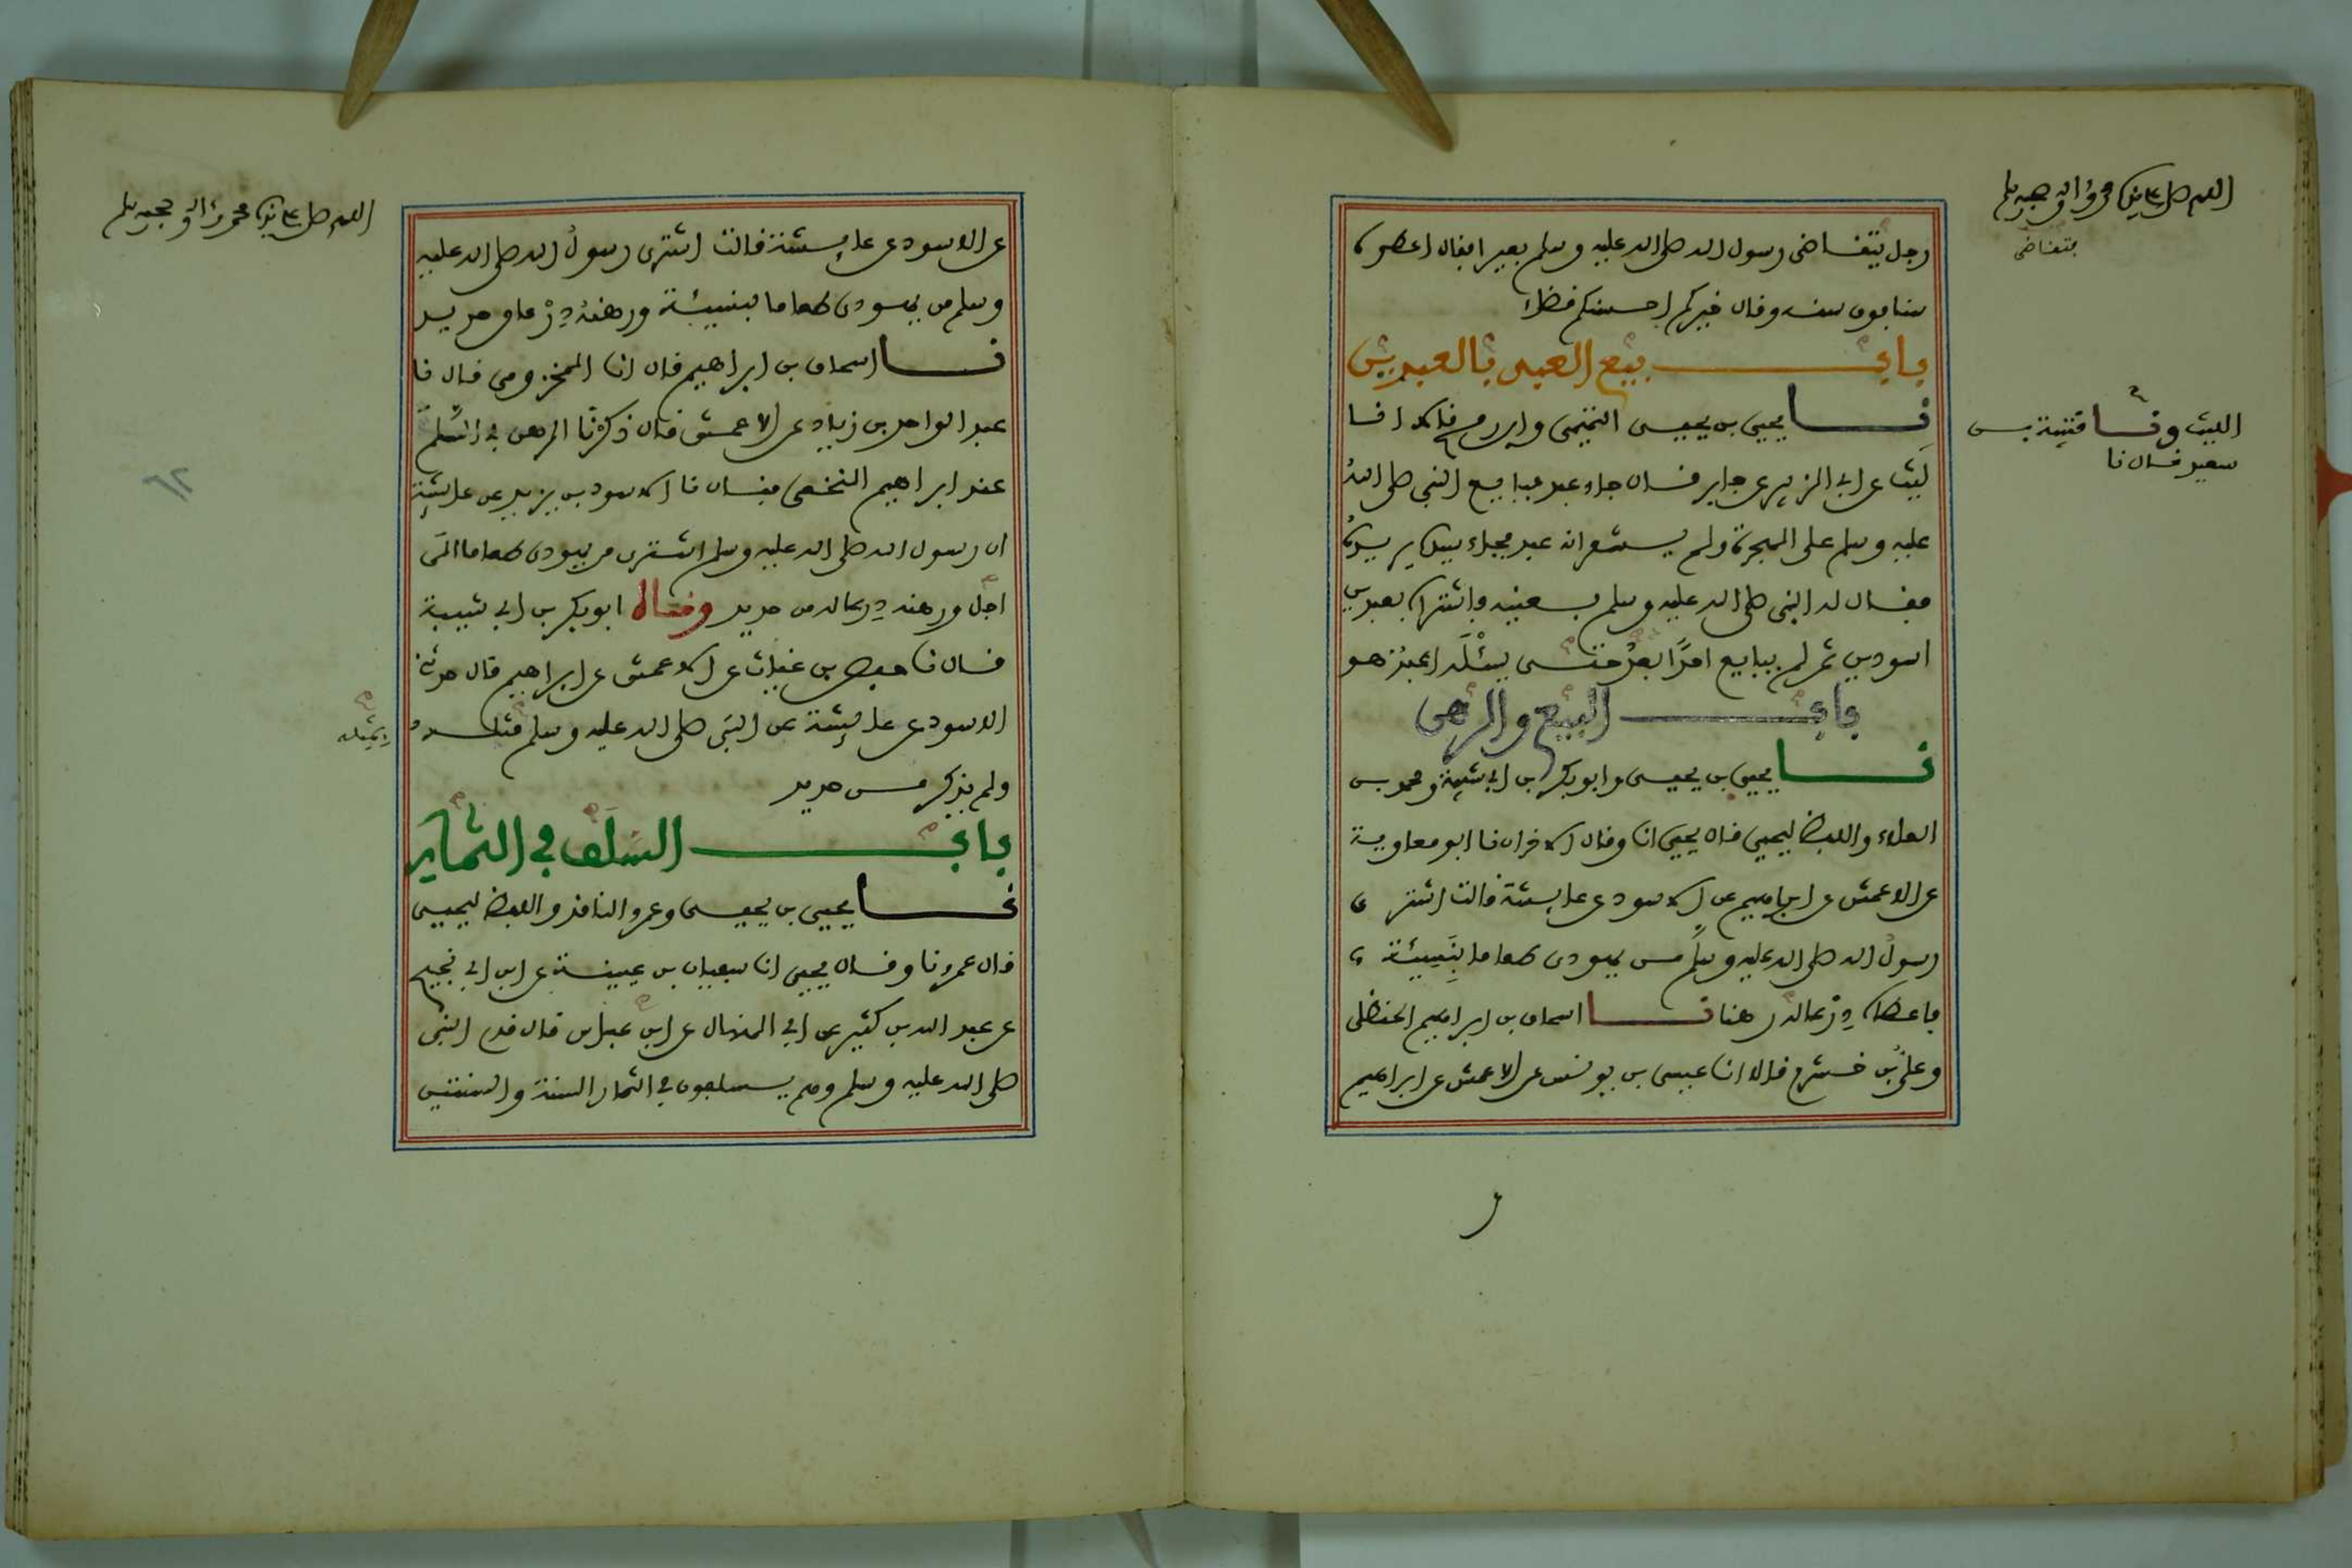 اللهم صل على سيدنا محمد وآله وصحبه وسلم
يتقاضى
رجل يتقاضى رسول الله صلى الله عليه وسلم بعيرا فقال اعطوه
سنا فوق سنه وقال خيركم احسنكم قضاء
باب بيع العبد بالعبدين
نا يحيى بن يحيى التميمي وابن رمح قالا انا
الليث ونا قتيبة بن
سعيد قال نا
ليث عن ابي الزبير عن جابر قال جاء عبد فبايع النبي صلى الله
عليه وسلم على الهجرة ولم يشعر انه عبد فجاء سيده يريده
فقال له النبي صلى الله عليه وسلم بعنيه فاشتراه بعبدين
اسودين ثم لم يبايع احدا بعد حتى يسئله اعبد هو
باب البيع والرهن
نا يحيى بن يحيى وابو بكر بن ابي شيبة ومحمد بن
العلاء واللفظ ليحيى قال يحيى انا وقال الاخران نا ابو معاوية
عن الاعمش عن ابراهيم عن الاسود عن عايشة قالت اشترى
رسول الله صلى الله عليه وسلم من يهودي طعاما بنسيئة
فاعطاه درعا له رهنا نا اسحاق بن ابراهيم الحنظلي
وعلي بن خشرم قالا انا عيسى بن يونس عن الاعمش عن ابراهيم
اللهم صل على سيدنا محمد وآله وصحبه وسلم
عن الاسود عن عايشة قالت اشترى رسول الله صلى الله عليه
وسلم من يهودي طعاما بنسيئة ورهنه درعا من حديد
نا اسحاق بن ابراهيم قال انا المخزومي قال نا
عبد الواحد بن زياد عن الاعمش قال ذكرنا الرهن في السلم
عند ابراهيم النخعي فقال نا الاسود بن يزيد عن عايشة
ان رسول الله صلى الله عليه وسلم اشترى من يهودي طعاما الى
اجل ورهنه درعا له من حديد وقال ابو بكر بن ابي شيبة
قال نا حفص بن غياث عن الاعمش عن ابراهيم قال حدثني
الاسود عن عايشة عن النبي صلى الله عليه وسلم مثله
بمثله
ولم يذكر من حديد
باب السلف في الثمار
نا يحيى بن يحيى وعمرو الناقد واللفظ ليحيى
قال عمرو نا وقال يحيى انا سفيان بن عيينة عن ابن ابي نجيح
عن عبد الله بن كثير عن ابي المنهال عن ابن عباس قال قدم النبي
صلى الله عليه وسلم وهم يسلفون في الثمار السنة والسنتين
٦٢